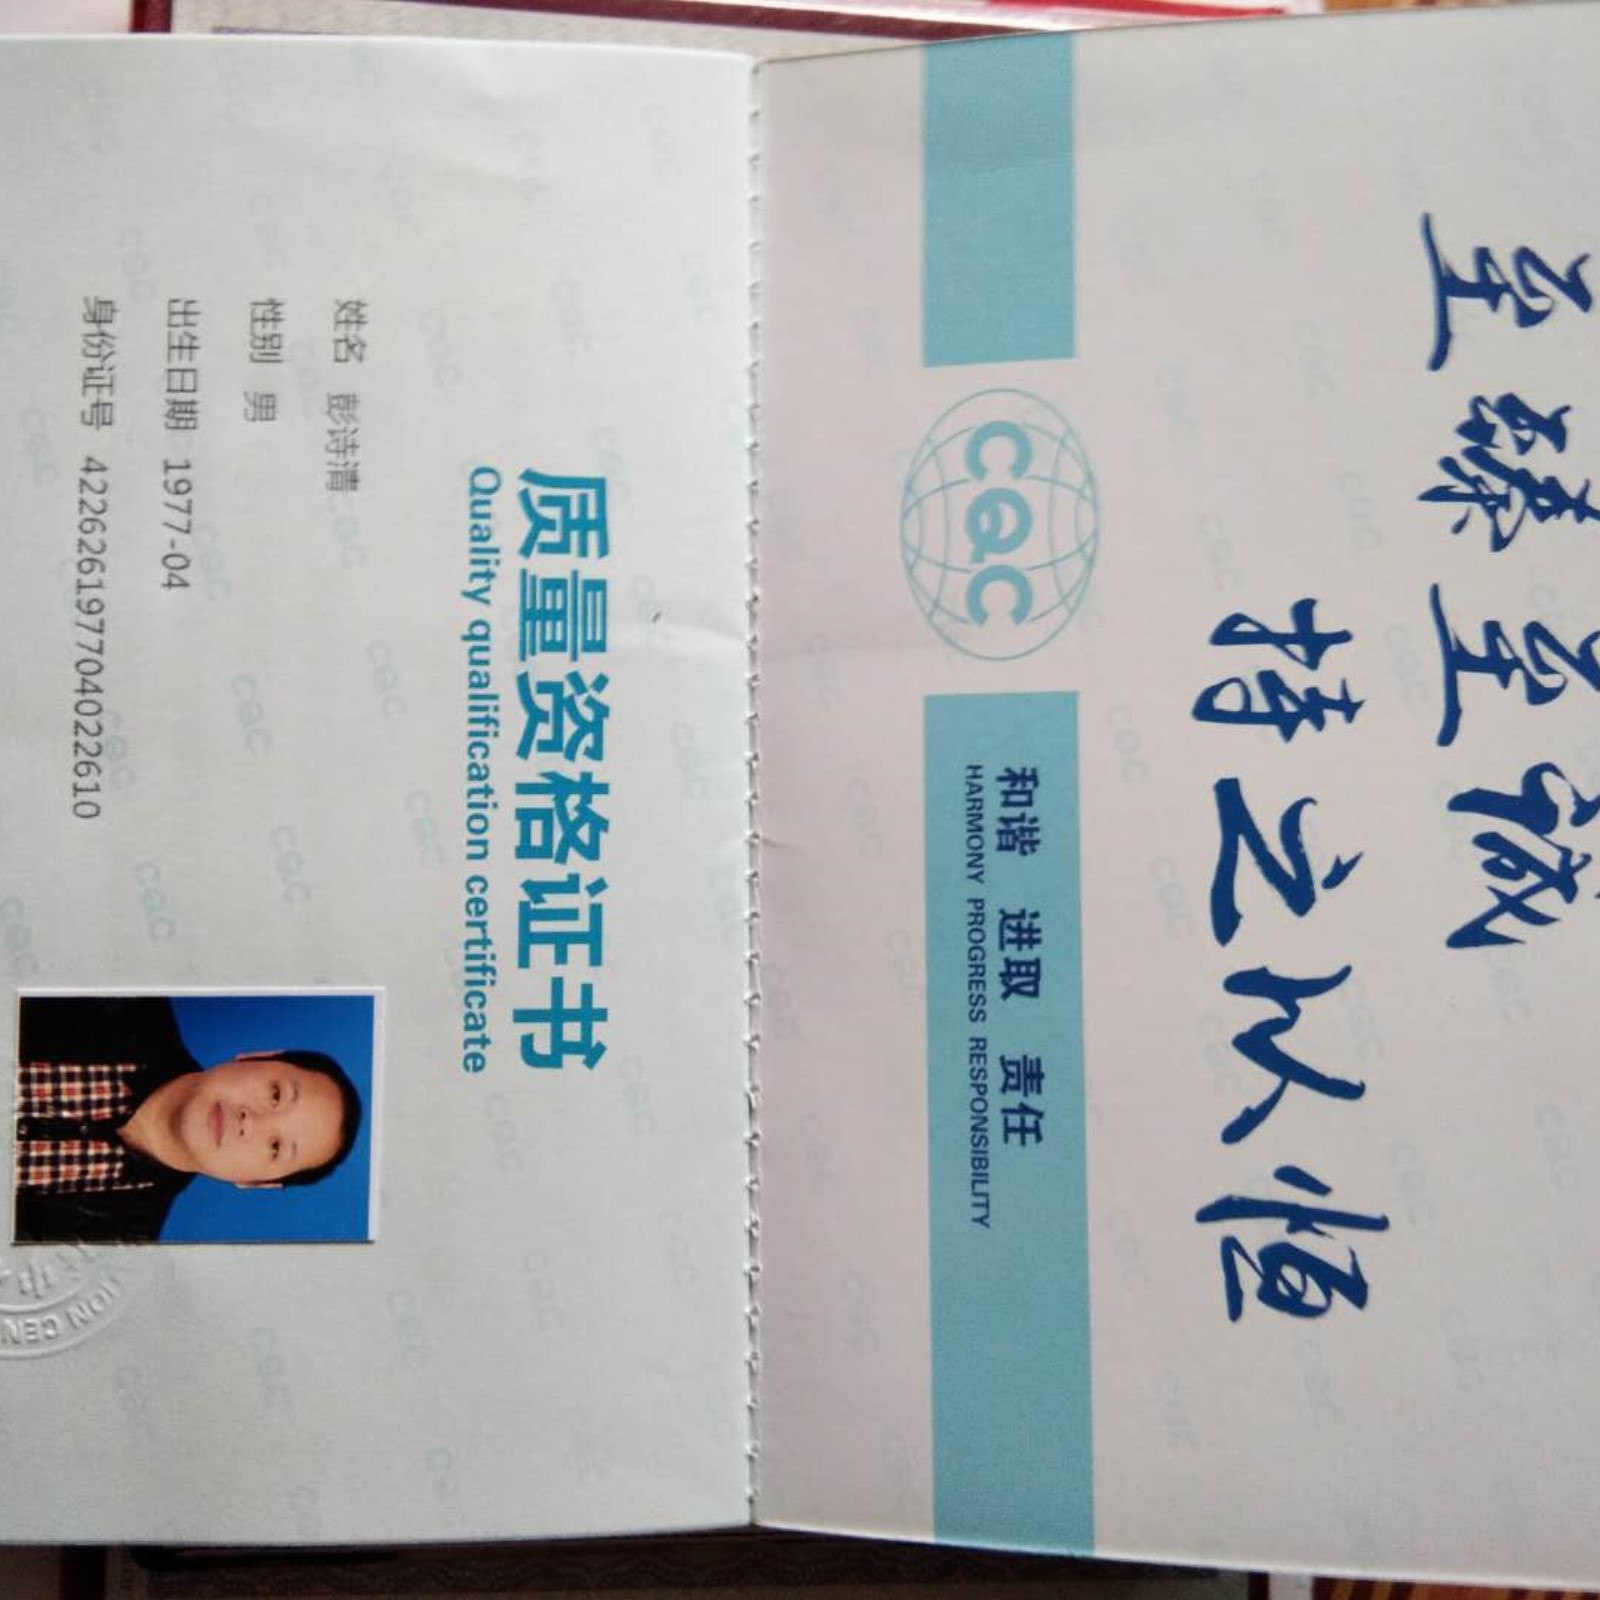 至臻至诚
持之以恒
CQC
和谐 进取 责任
HARMONY PROGRESS RESPONSIBILITY
质量资格证书
Quality qualification certificate
姓名 彭诗清
性别 男
出生日期 1977-04
身份证号 422626197704022610
ION CEN